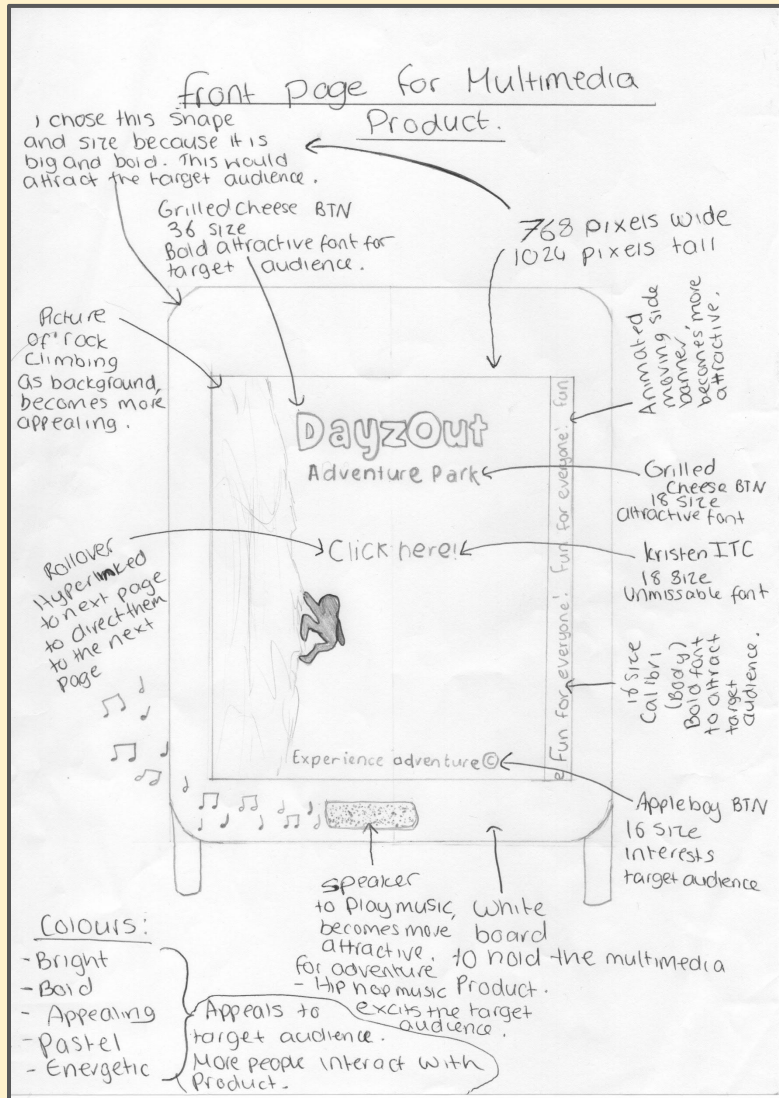 front page for Multimedia
Product.
I chose this shape
and size because it is
big and bold. This would
attract the target audience.
768 pixels wide
1024 pixels tall
Grilled Cheese BTN
36 size
Bold attractive font for
target audience.
Picture
of rock
climbing
as background,
becomes more
appealing.
Animated
moving side
banner, becomes more
attractive.
DayzOut
Adventure Park
Grilled
Cheese BTN
18 size
attractive font
Click here!
Kristen ITC
18 size
Unmissable font
Rollover
Hyperlinked
to next page
to direct them
to the next
page
e Fun for everyone! Fun for everyone! fun
16 size
Calibri
(Body)
Bold font
to attract
target
audience.
Experience adventure©
Appleboy BTN
16 size
interests
target audience
speaker
to play music,
becomes more
attractive.
for adventure
- Hip hop music
excits the target
audience.
White
board
to hold the multimedia
Product.
Colours:
- Bright
- Bold
- Appealing
- Pastel
- Energetic
Appeals to
target audience.
More people interact with
Product.